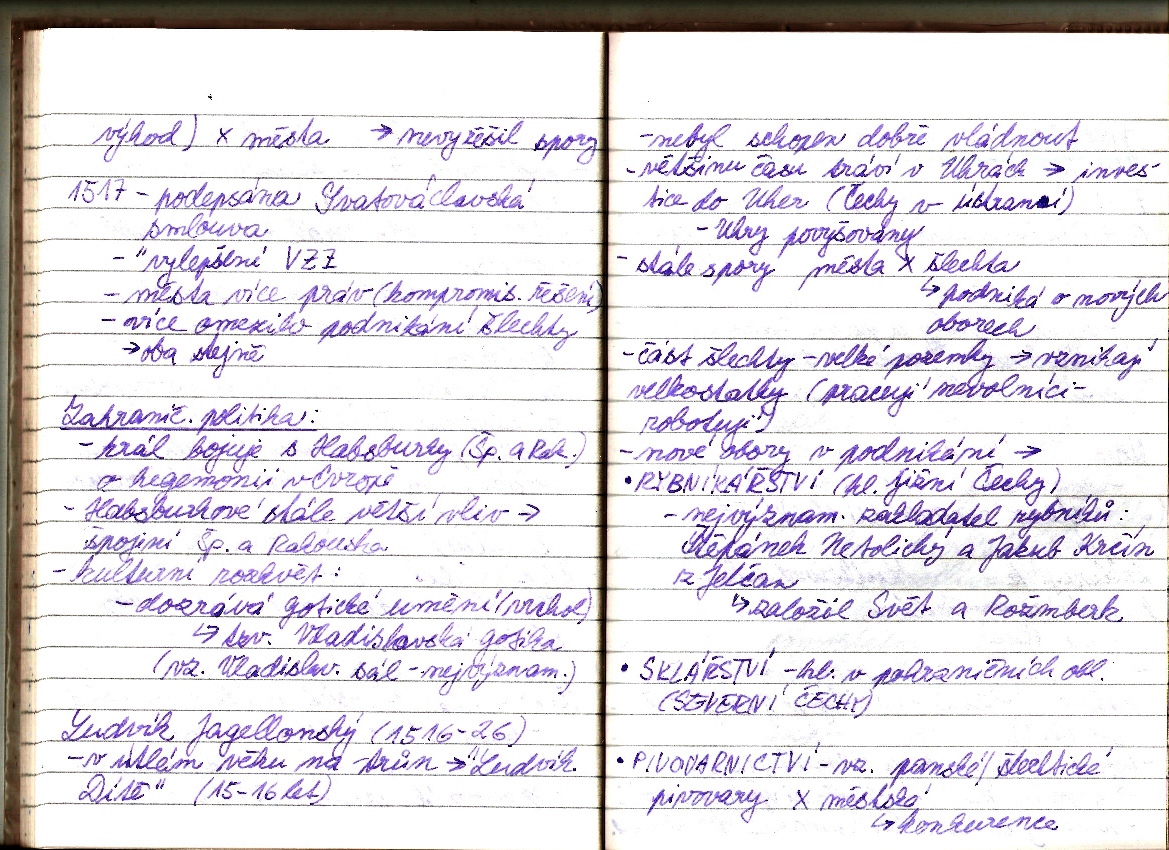 výhod) x města → nevyřešil spory
1517 - podepsána Svatováclavská
smlouva
- "vylepšení VZZ
- města více práv (kompromis. řešení)
- více omezilo podnikání šlechty
→ oba stejně
Zahranič. politika:
- král bojuje s Habsburky (Šp. a Rak.)
o hegemonii v Evropě
- Habsburkové stále větší vliv →
spojení Šp. a Rakouska
- kulturní rozkvět:
- dozrává gotické umění (vrchol)
↳ tzv. Vladislavská gotika
(vz. Vladislav. sál - nejvýznam.)
Ludvík Jagellonský (1516-26)
- v útlém věku na trůn → "Ludvík
Dítě" (15-16 let)
- nebyl schopen dobře vládnout
- většinu času tráví v Uhrách → inves-
tice do Uher (Čechy v ústraní)
- Uhry povyšovány
- stále spory města x šlechta
↳ podniká v nových
oborech
- část šlechty - velké pozemky → vznikají
velkostatky (pracují nevolníci -
robotují)
- nové obory v podnikání →
• RYBNÍKÁŘSTVÍ (hl. jižní Čechy)
- nejvýznam. zakladatel rybníků:
Štěpánek Netolický a Jakub Krčín
z Jelčan
↳ založil Svět a Rožmberk
• SKLÁŘSTVÍ - hl. v pohraničních obl.
(SEVERNÍ ČECHY)
• PIVOVARNICTVÍ - vz. panské/šlechtické
pivovary x městská
↳ konkurence